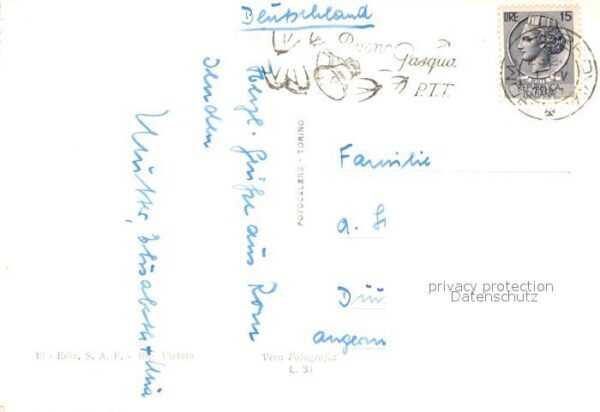 Deutschland
Buona
Pasqua
P.T.T.
LIRE 15
REPUBBLICA
ITALIANA
ROMA
Herzl. Grüße aus Rom
senden
Mutter, Elisabeth + Mia
FOTOCELERE - TORINO
Familie
a.
angerm
privacy protection
Datenschutz
10 - Ediz. S. A. F. - Rip. Vietata
Vera Fotografia
L. 35